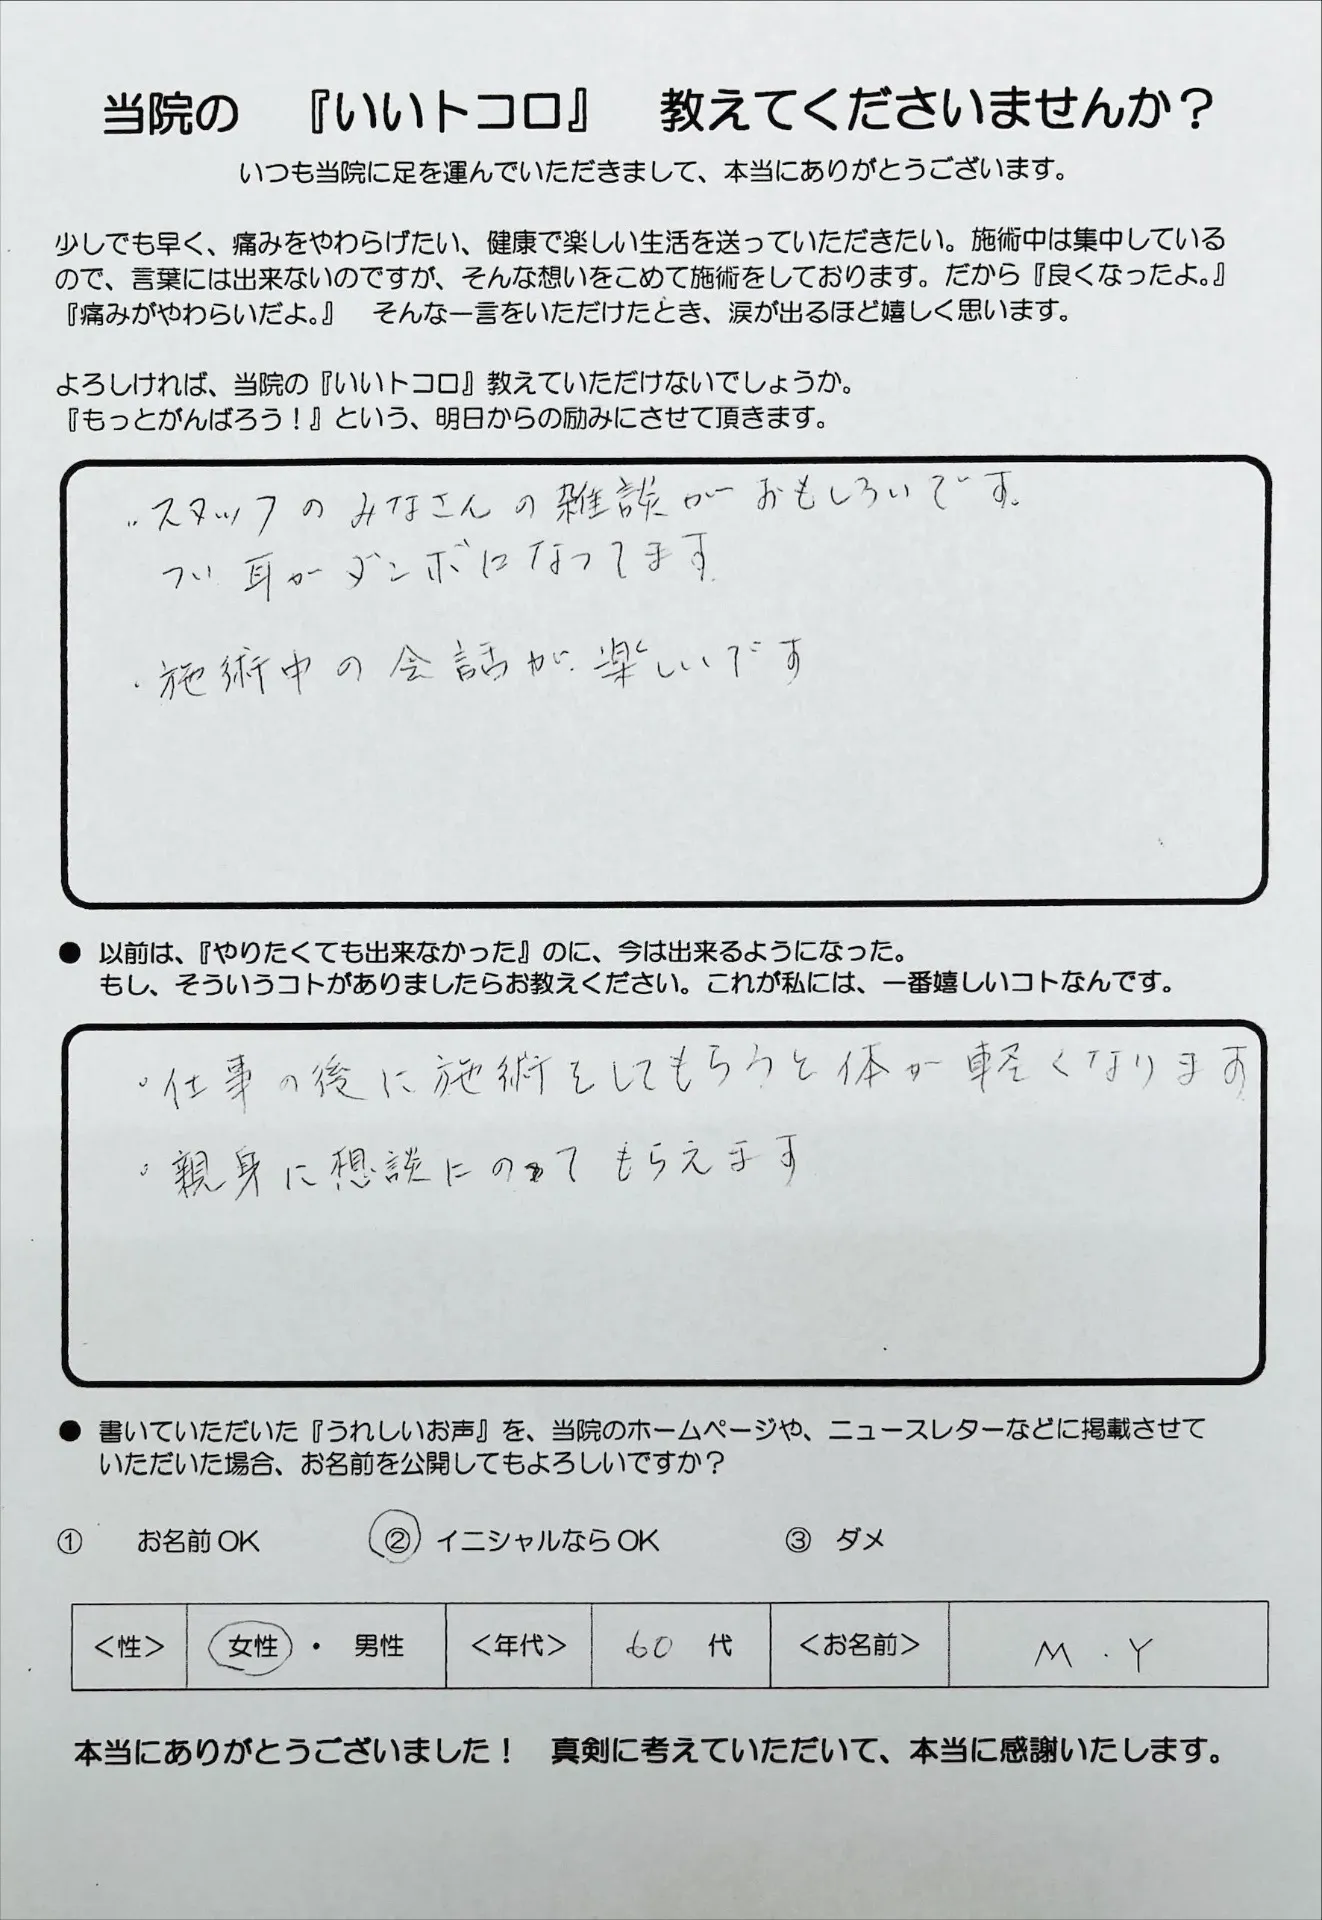 当院の 『いいトコロ』 教えてくださいませんか？
いつも当院に足を運んでいただきまして、本当にありがとうございます。
少しでも早く、痛みをやわらげたい、健康で楽しい生活を送っていただきたい。施術中は集中している
ので、言葉には出来ないのですが、そんな想いをこめて施術をしております。だから『良くなったよ。』
『痛みがやわらいだよ。』 そんな一言をいただけたとき、涙が出るほど嬉しく思います。
よろしければ、当院の『いいトコロ』教えていただけないでしょうか。
『もっとがんばろう！』という、明日からの励みにさせて頂きます。
・スタッフのみなさんの雑談がおもしろいです。
つい耳がダンボになってます
・施術中の会話が楽しいです
● 以前は、『やりたくても出来なかった』のに、今は出来るようになった。
もし、そういうコトがありましたらお教えください。これが私には、一番嬉しいコトなんです。
・仕事の後に施術をしてもらうと体が軽くなります
・親身に想談にのってもらえます
● 書いていただいた『うれしいお声』を、当院のホームページや、ニュースレターなどに掲載させて
いただいた場合、お名前を公開してもよろしいですか？
① お名前OK ② イニシャルならOK ③ ダメ
＜性＞ 女性 ・ 男性 ＜年代＞ 60 代 ＜お名前＞ M．Y
本当にありがとうございました！ 真剣に考えていただいて、本当に感謝いたします。